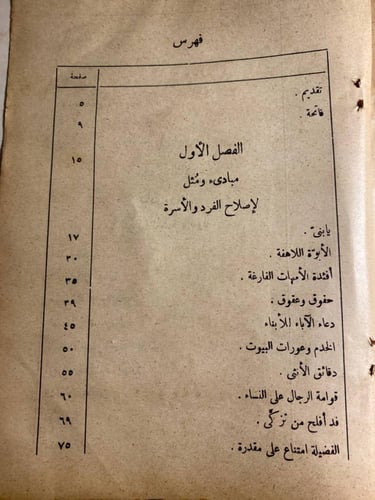 فهرس
صفحة
تقديم . ٥
فاتحة . ٩
الفصل الأول ١٥
مبادىء ومُثل
لإصلاح الفرد والأسرة
يابنىّ . ١٧
الأبوّة اللاهفة . ٣٠
أفئدة الأمهات الفارغة . ٣٥
حقوق وعقوق . ٣٩
دعاء الآباء للأبناء ٤٥
الخدم وعورات البيوت . ٥٠
دقائق الأنثى . ٥٥
قوامة الرجال على النساء . ٦٠
قد أفلح من تزكّى . ٦٩
الفضيلة امتناع على مقدرة . ٧٥